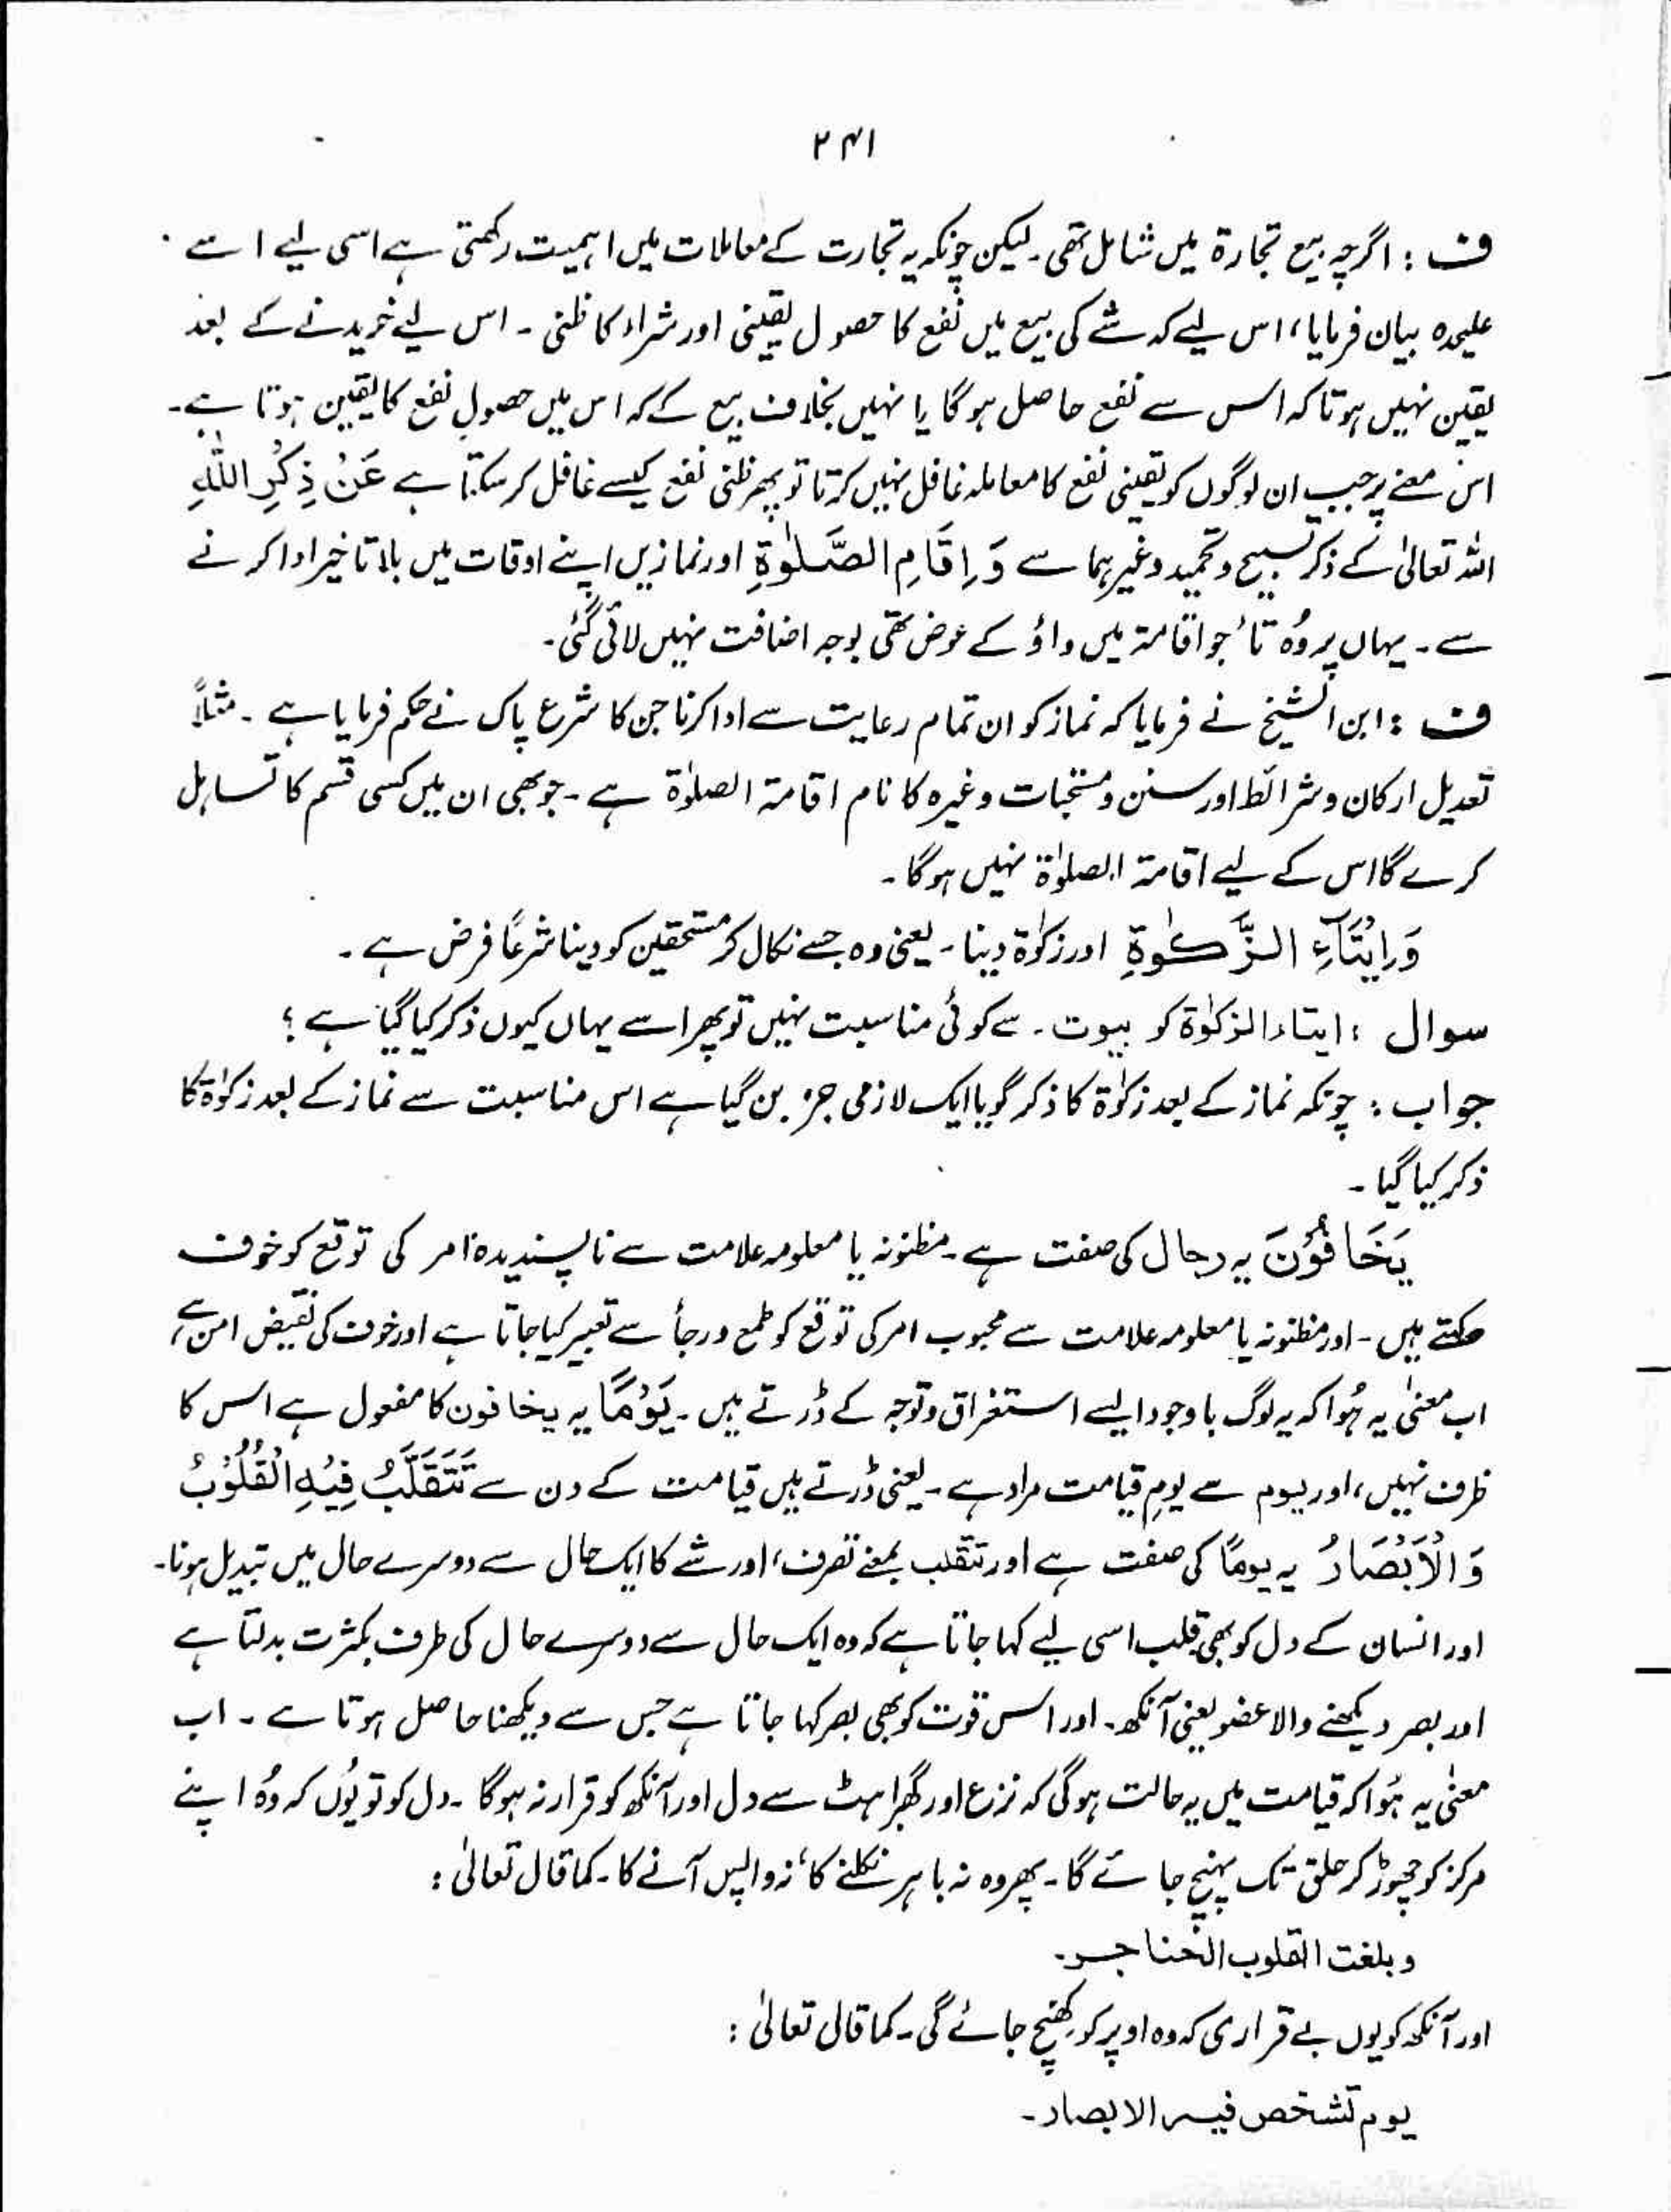 ۲۴۱
ف : اگرچہ بیع تجارۃ میں شامل تھی۔ لیکن چونکہ یہ تجارت کے معاملات میں اہمیت رکھتی ہے اسی لیے اسے
علیحدہ بیان فرمایا، اس لیے کہ شے کی بیع میں نفع کا حصول یقینی اور شراء کا ظنی ۔ اس لیے خریدنے کے بعد
یقین نہیں ہوتا کہ اس سے نفع حاصل ہوگا یا نہیں بخلاف بیع کے کہ اس میں حصولِ نفع کا یقین ہوتا ہے۔
اس معنے پر جب ان لوگوں کو یقینی نفع کا معاملہ غافل نہیں کرتا تو پھر ظنی نفع کیسے غافل کر سکتا ہے عَنْ ذِكْرِ اللّٰهِ
اللہ تعالیٰ کے ذکر تسبیح و تحمید وغیرہما سے وَ اِقَامِ الصَّلٰوةِ اور نمازیں اپنے اوقات میں بلا تاخیر ادا کرنے
سے ۔ یہاں پر وُہ تاء جو اقامۃ میں واؤ کے عوض تھی بوجہ اضافت نہیں لائی گئی۔
ف : ابن الشیخ نے فرمایا کہ نماز کو ان تمام رعایت سے ادا کرنا جن کا شرع پاک نے حکم فرمایا ہے ۔ مثلاً
تعدیل ارکان و شرائط اور سنن و مستحبات وغیرہ کا نام اقامۃ الصلوٰۃ ہے ۔ جو بھی ان میں کسی قسم کا تساہل
کرے گا اس کے لیے اقامۃ الصلوٰۃ نہیں ہوگا۔
وَ اِيْتَآءِ الزَّكٰوةِ اور زکوٰۃ دینا ۔ یعنی وہ جسے نکال کر مستحقین کو دینا شرعاً فرض ہے ۔
سوال : ایتاء الزکوٰۃ کو بیوت ۔ سے کوئی مناسبت نہیں تو پھر اسے یہاں کیوں ذکر کیا گیا ہے ؟
جواب : چونکہ نماز کے بعد زکوٰۃ کا ذکر گویا ایک لازمی جز بن گیا ہے اس مناسبت سے نماز کے بعد زکوٰۃ کا
ذکر کیا گیا ۔
يَخَافُوْنَ یہ رجال کی صفت ہے ۔ مظنونہ یا معلومہ علامت سے ناپسندیدہ امر کی توقع کو خوف
کہتے ہیں ۔ اور مظنونہ یا معلومہ علامت سے محبوب امر کی توقع کو طمع و رجأ سے تعبیر کیا جاتا ہے اور خوف کی نقیض امن ہے،
اب معنیٰ یہ ہُوا کہ یہ لوگ باوجود ایسے استغراق و توجہ کے ڈرتے ہیں ۔ يَوْمًا یہ یخافون کا مفعول ہے اس کا
ظرف نہیں، اور یوم سے یومِ قیامت مراد ہے ۔ یعنی ڈرتے ہیں قیامت کے دن سے تَتَقَلَّبُ فِيْهِ الْقُلُوْبُ
وَ الْاَبْصَارُ یہ یوماً کی صفت ہے اور تتقلب بمعنے تصرف، اور شے کا ایک حال سے دوسرے حال میں تبدیل ہونا۔
اور انسان کے دل کو بھی قلب اسی لیے کہا جاتا ہے کہ وہ ایک حال سے دوسرے حال کی طرف بکثرت بدلتا ہے
اور بصر دیکھنے والا عضو یعنی آنکھ ۔ اور اس قوت کو بھی بصر کہا جاتا ہے جس سے دیکھنا حاصل ہوتا ہے ۔ اب
معنیٰ یہ ہُوا کہ قیامت میں یہ حالت ہوگی کہ نزع اور گھبراہٹ سے دل اور آنکھ کو قرار نہ ہوگا ۔ دل کو تو یُوں کہ وُہ اپنے
مرکز کو چھوڑ کر حلق تک پہنچ جائے گا ۔ پھر وہ نہ باہر نکلنے کا، نہ واپس آنے کا ۔ کما قال تعالیٰ :
وبلغت القلوب الحناجر۔
اور آنکھ کو یوں بے قراری کہ وہ اوپر کو کِھنچ جائے گی ۔ کما قال تعالیٰ :
یوم تشخص فیہ الابصار ۔